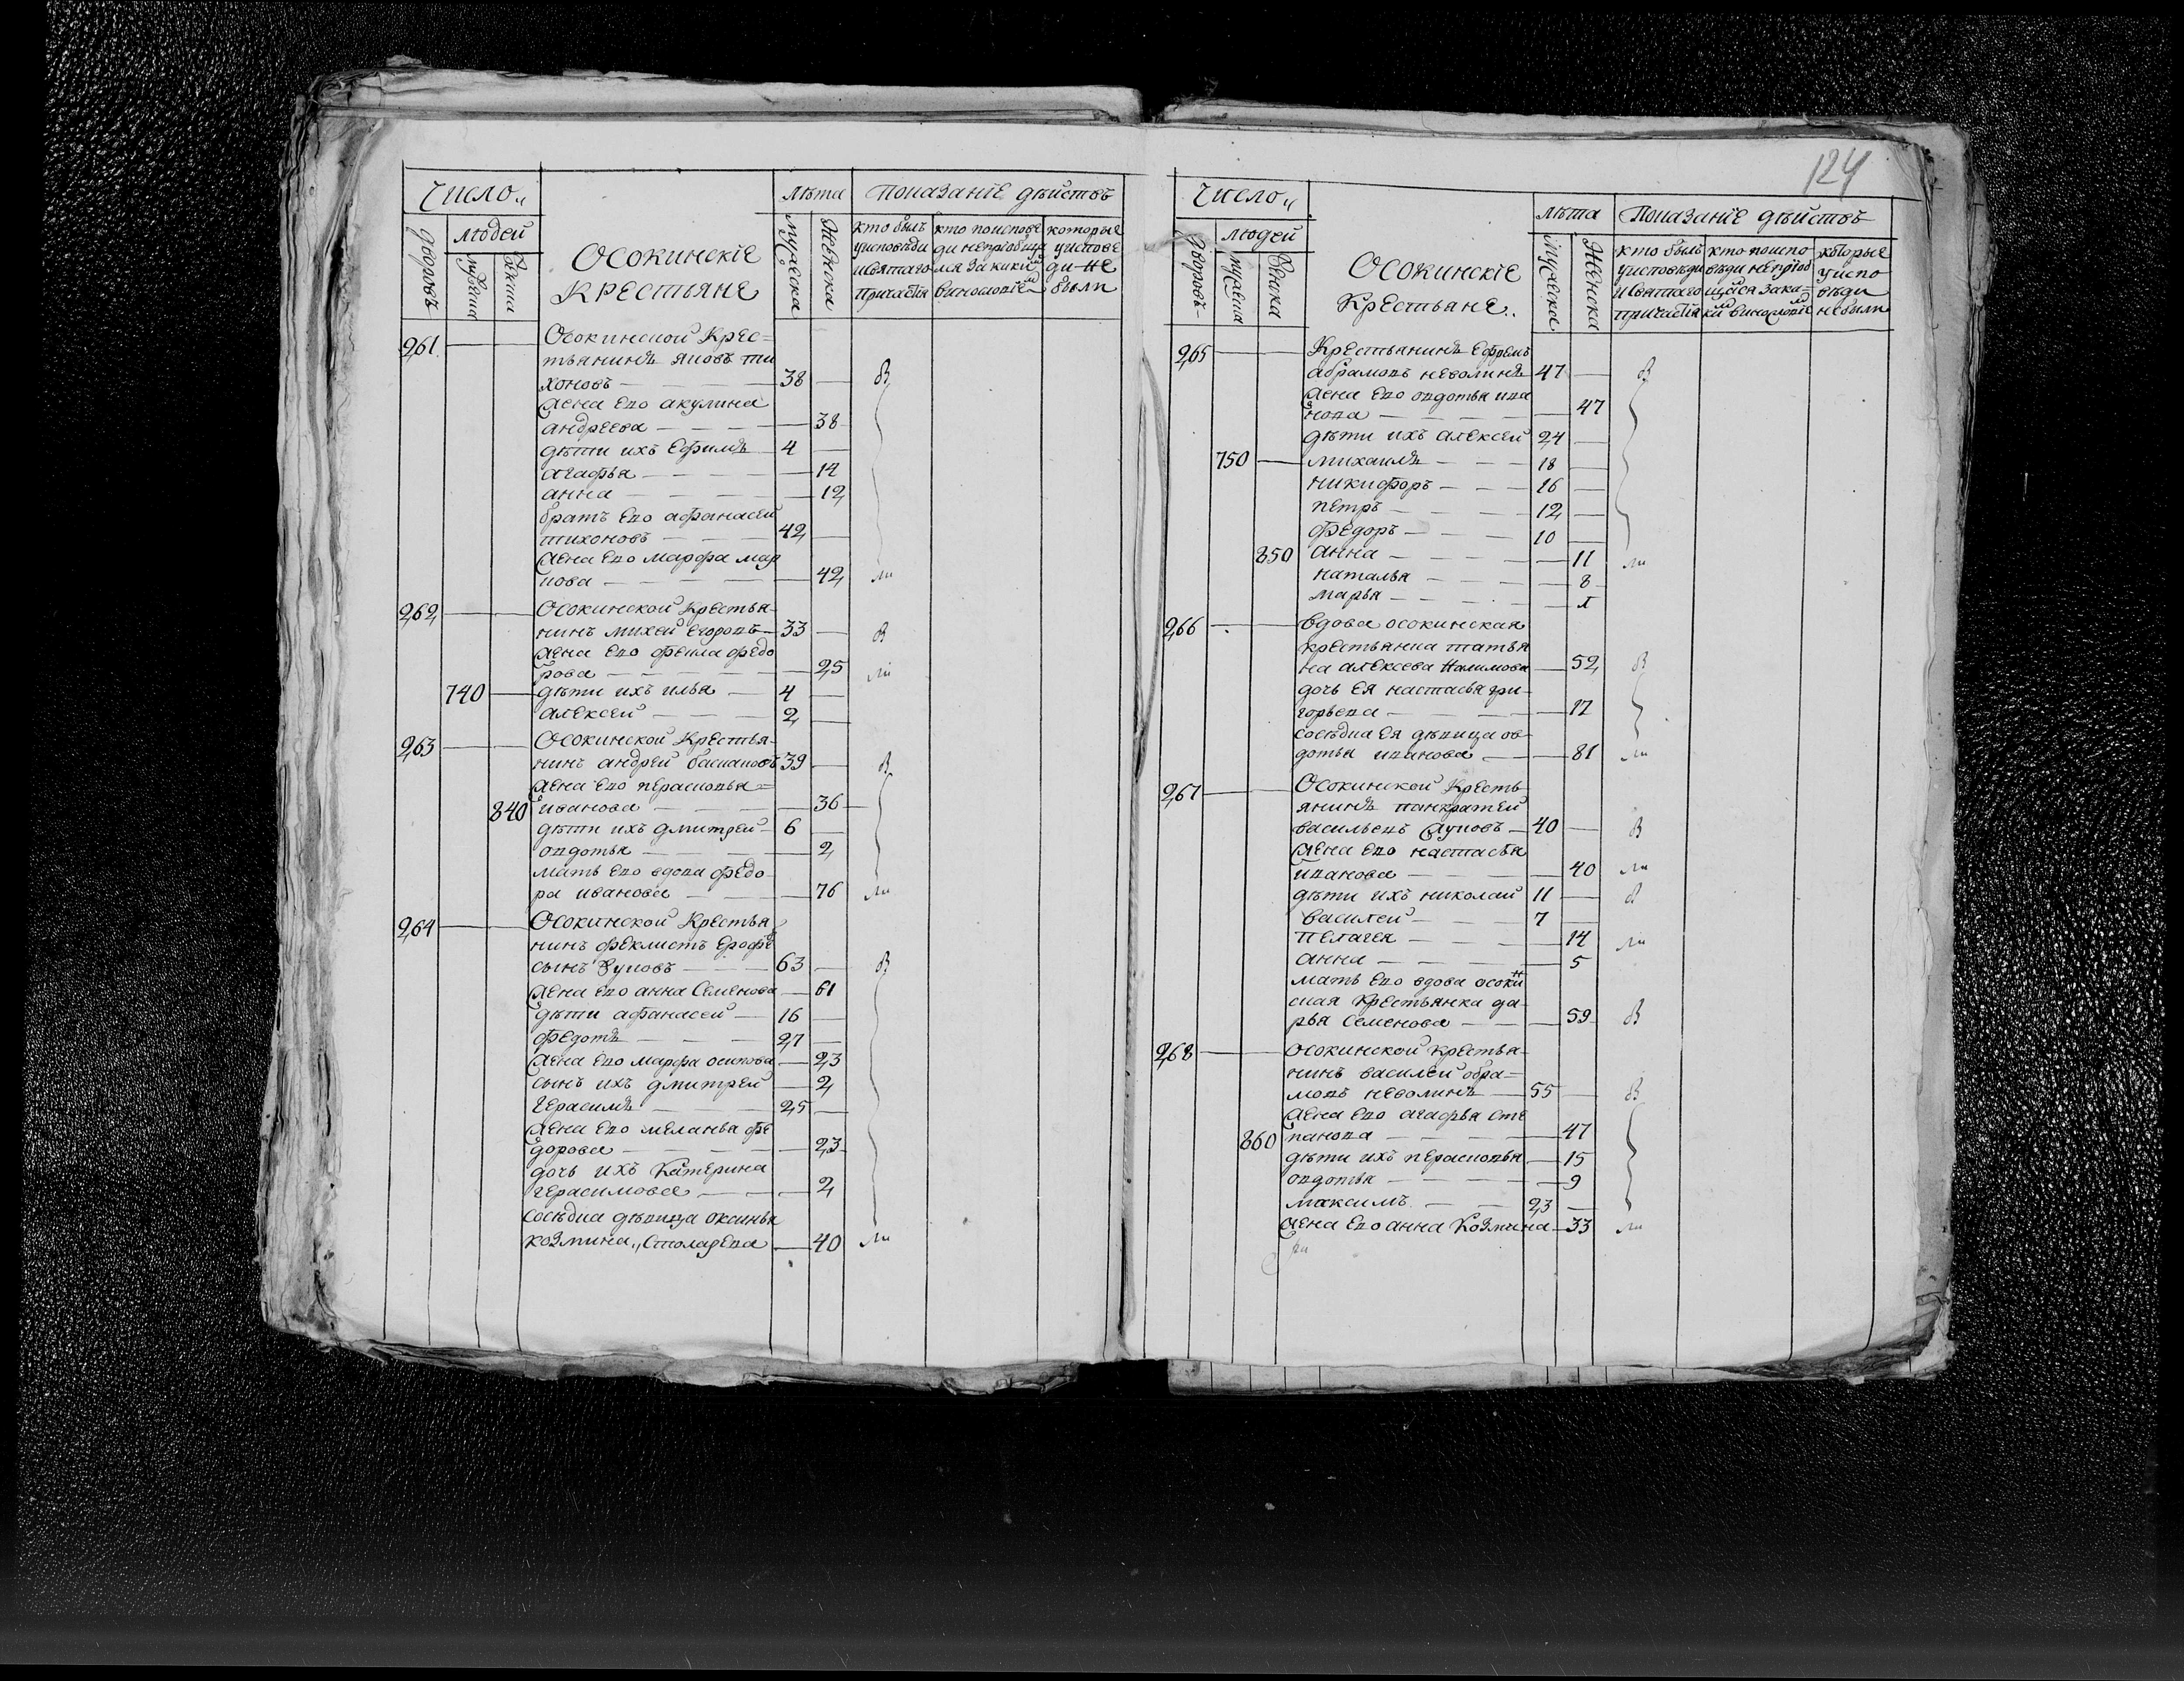 124
Число
людей
дворовъ
мужеска
женска
Осокинскіе
Крестьяне
лѣта
мужеска
женска
Показаніе дѣйствъ
кто былъ
уисповѣди
исвятаго
причастія
кто поиспове
ди непріобщи
лся закикимъ
винословіемъ
которые
уиспове
ди не
были
261
Осокинской Крес=
тьянинъ яковъ ти
хоновъ 38 В
жена его акулина
андреева 38
дѣти ихъ Ефимъ 4
агафья 14
анна 12
братъ его афанасей
тихоновъ 42
жена его марфа мар
кова 42 ли
262 Осокинской крестья
нинъ михей егоровъ 33 В
жена его фекла федо
рова 25 ли
740 дѣти ихъ илья 4
алексей 2
263 Осокинской Крестья-
нинъ андрей баспаловъ 39 В
жена его перасковья=
840 иванова 36
дѣти ихъ дмитрей 6
овдотья 2
мать его вдова федо
ра иванова 76 ли
264 Осокинской Крестья
нинъ феклистъ Ерофѣ
сынъ Зуповъ 63 В
жена его анна Семенова 61
дѣти афанасей 16
федотъ 27
жена его марфа осипова 23
сынъ ихъ дмитрей 2
герасимъ 25
жена его меланья фе
дорова 23
дочь ихъ Катерина
герасимова 2
сосѣдка дѣвица оксинья
козмина,, Столарева 40 ли
Число
людей
дворовъ
мужеска
женска
Осокинскіе
Крестьяне..
лѣта
мужеска
женска
Показаніе дѣйствъ
кто былъ
уисповѣди
исвятаго
причастія
кто поиспо
вѣди непріоб
щился зака=
кимъ винословіемъ
которые
уиспо
вѣди
небыли
265 Крестьянинъ Ефремъ
абрамовъ неволинъ 47 В
жена его овдотья ива
нова 47
дѣти ихъ алексей 24
750 михаилъ 18
никифоръ 16
петръ 12
федоръ 10
850 анна 11 ли
наталья 8
марья
266 вдова осокинская
крестьянка татья
на алексева Налимова 52 В
дочь ея настасья гри-
горьева 17
сосѣдка ея дѣвица ов-
дотья иванова 81 ли
267 Осокинской Кресть
янинъ панкратей
васильевъ жуковъ 40 В
жена его настасья
иванова 40 ли
дѣти ихъ николай 11 В
василей 7
пелагея 14 ли
анна 5
мать его вдова осокин
ская крестьянка да
рья семенова 59 В
268 осокинской крестья-
нинъ василей обра=
мовъ неволинъ 55 В
жена его агафья сте
860 панова 47
дѣти ихъ перасковья 15
овдотья 9
максимъ 23
жена его анна Козмина 33 ли